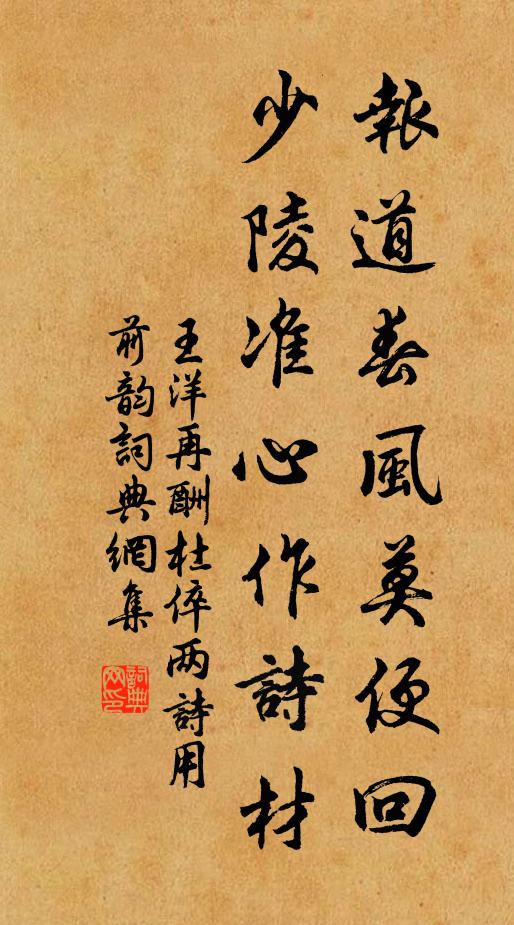 報道春風莫便回
少陵准心作詩材
王洋再酬杜倅两詩用
前韵詞典網集
詞典网印